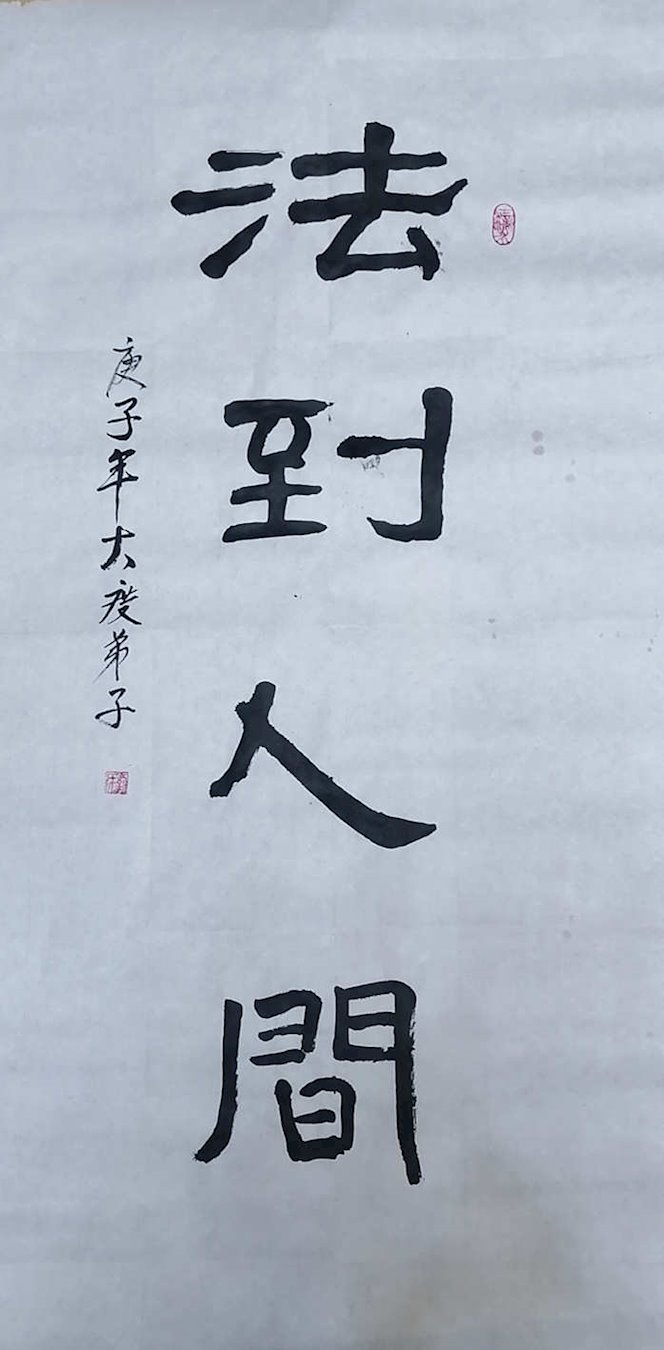 法到人間
庚子年大度弟子